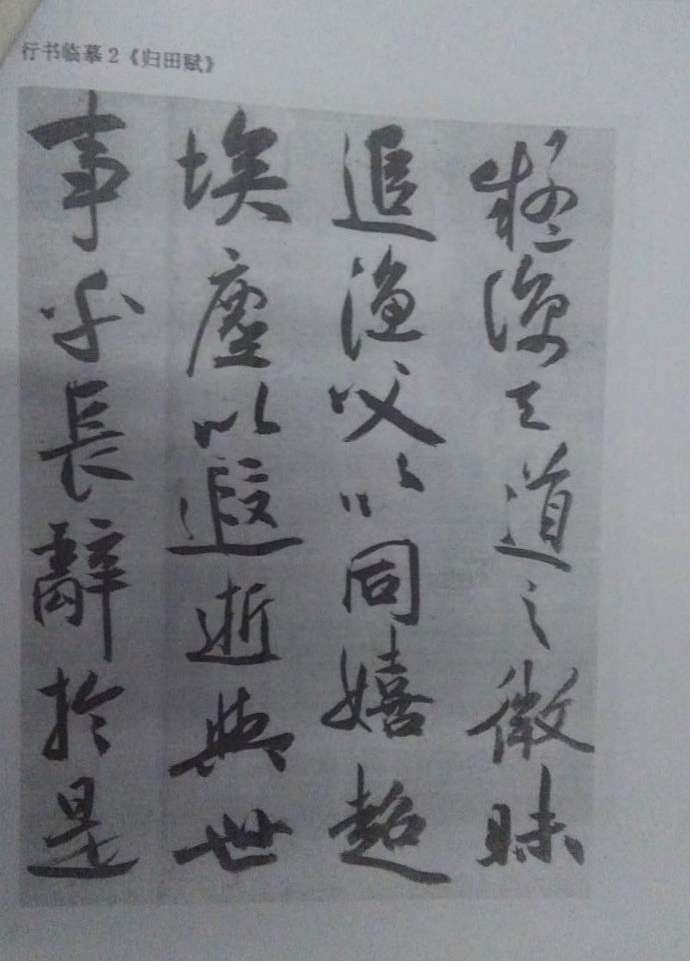 行书临摹2《归田赋》
疑諒天道之微昧
追漁父以同嬉超
埃塵以遐逝與世
事乎長辭於是